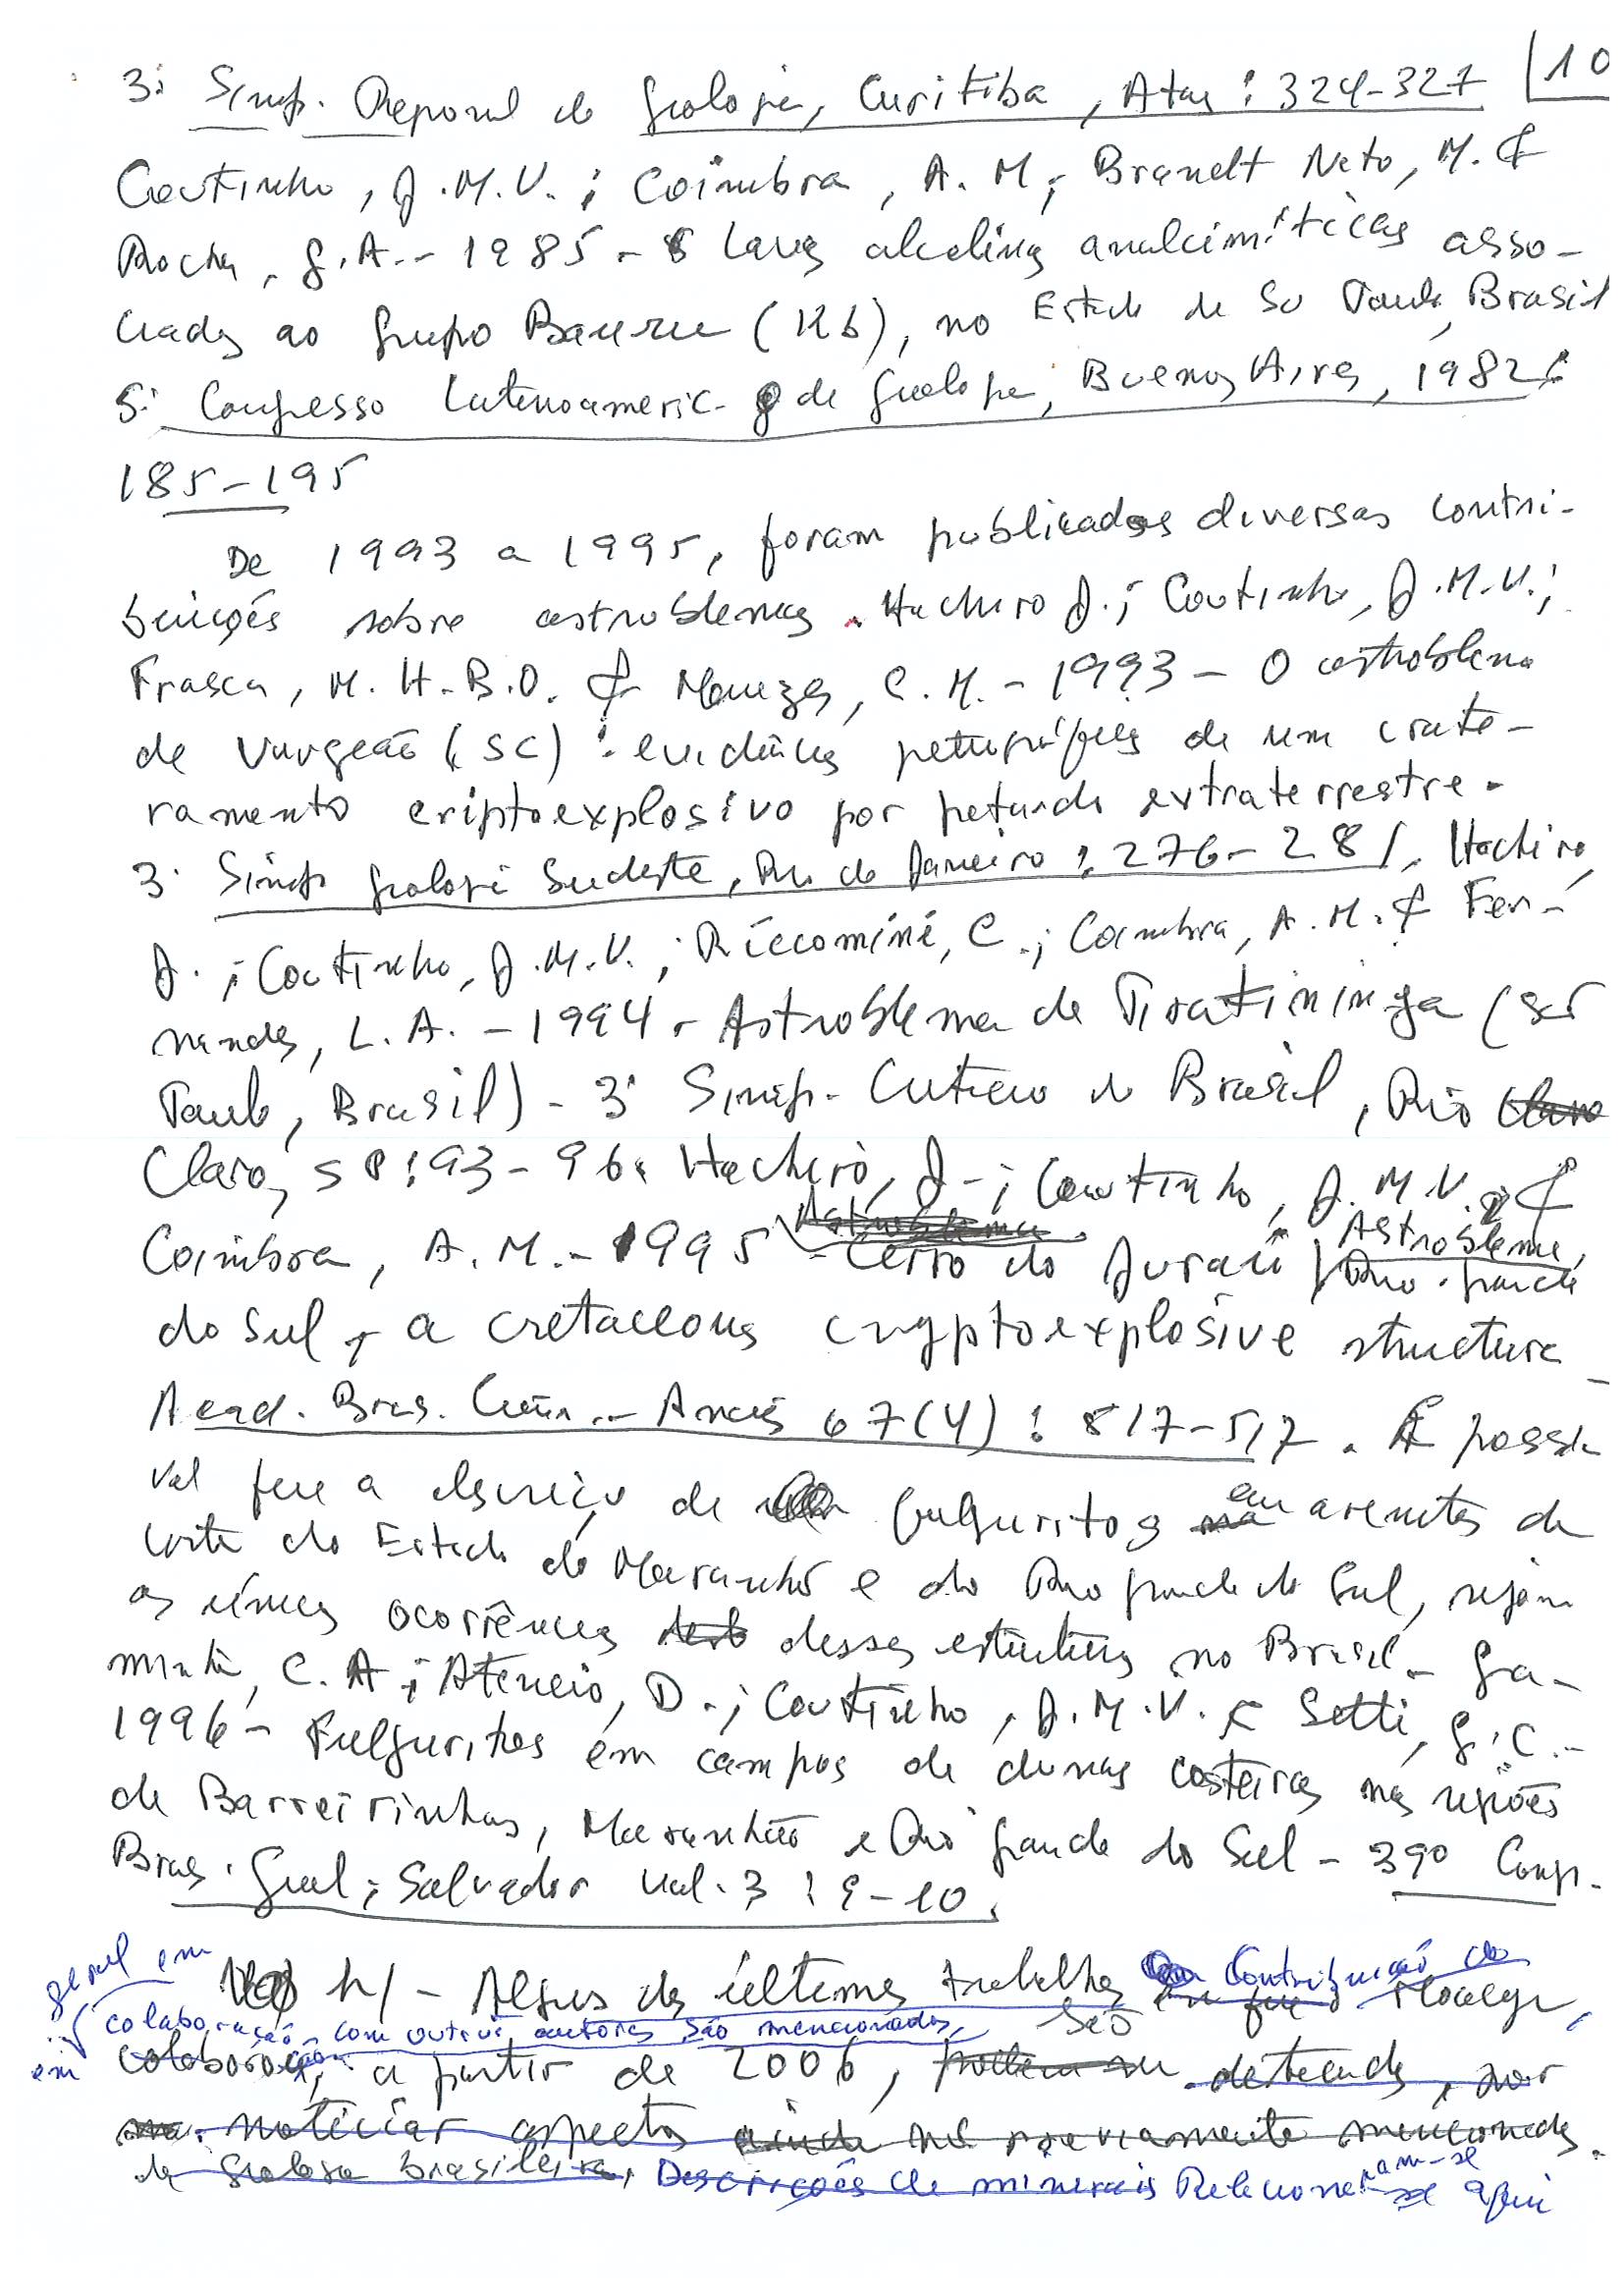 10
3º Simp. Regional de Geologia, Curitiba, Atas : 324-327
Coutinho, J.M.V. ; Coimbra, A.M ; Brandt Neto, M. &
Rocha, G.A. - 1985 - Lavas alcalinas analcimíticas asso-
ciadas ao Grupo Bauru (Kb), no Estado de São Paulo, Brasil
5º Congresso Latinoameric. de Geologia, Buenos Aires, 1982 :
185-195
De 1993 a 1995, foram publicadas diversas contri-
buições sobre astroblemas. Hachiro J. ; Coutinho, J.M.V. ;
Frasca, M.H.B.O. & Menezes, C.M. - 1993 - O astroblema
de Vargeão (SC) : evidências petrográficas de um crate-
ramento criptoexplosivo por petardo extraterrestre.
3º Simp Geologia Sudeste, Rio de Janeiro : 276-281. Hachiro,
J. ; Coutinho, J.M.V. ; Riccomini, C. ; Coimbra, A.M. & Fer-
nandes, L.A. - 1994 - Astroblema de Piratininga (São
Paulo, Brasil) - 3º Simp. Cretáceo do Brasil, Rio Claro
Claro, SP : 93-96. Hachiro, J - ; Coutinho, J.M.V. &
Astroblema Astrobleme,
Coimbra, A.M. - 1995 - Cerro do Jarau Rio Grande
do Sul, a cretaceous cryptoexplosive structure
Acad. Bras. Ciên. - Anais 67(4) : 517-517. É possí-
vel que a descrição de fulguritos em arenitos da
costa do Estado do Maranhão e do Rio Grande do Sul, sejam
as únicas ocorrências dessas estruturas no Brasil - Ga-
, C.A ; Atencio, D. ; Coutinho, J.M.V. & Setti, G.C. -
1996 - Fulguritos em campos de dunas costeiras nas regiões
de Barreirinhas, Maranhão e Rio Grande do Sul - 39º Congr.
Bras. Geol ; Salvador vol. 3 : 9-10.
geral em
h/ - Alguns dos últimos trabalhos Contribuição do
São em que
colaboração com outros autores são mencionados,
em colaboração, a partir de 2006, destecando, por
noticiar aspectos ainda não previamente mencionados.
da Geologia brasileira, Descrições de minerais Relacionaram-se aqui